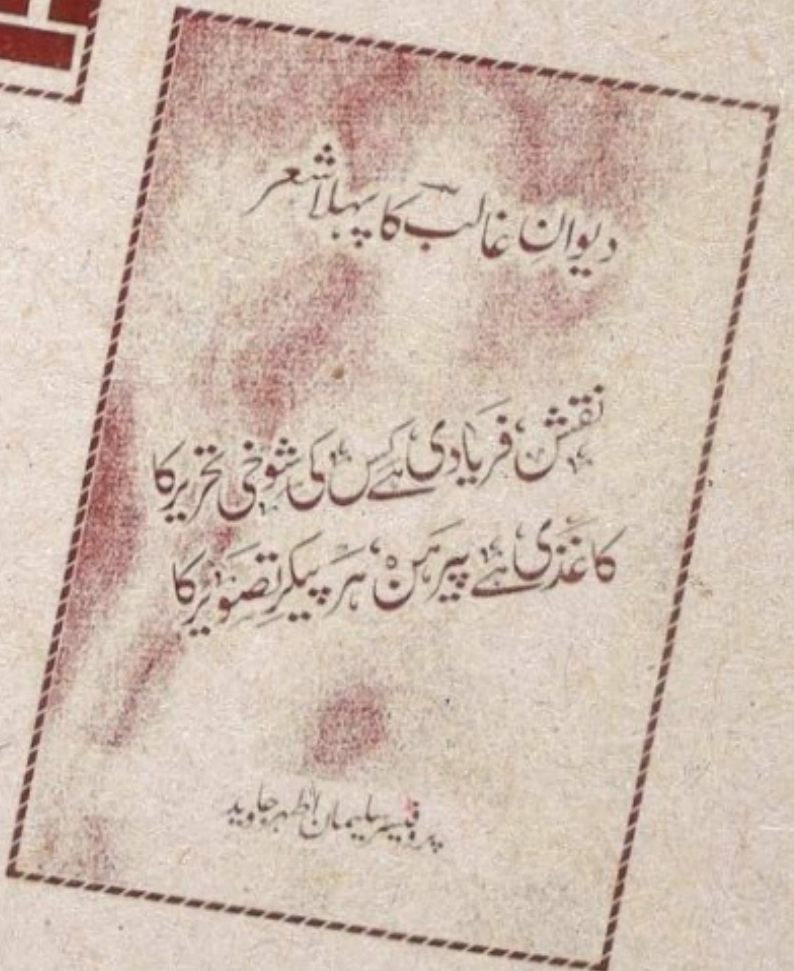 دیوانِ غالبؔ کا پہلا شعر
نقش، فریادی ہے کس کی شوخیٔ تحریر کا
کاغذی ہے پیرہن، ہر پیکرِ تصویر کا
پروفیسر سلیمان اطہر جاوید